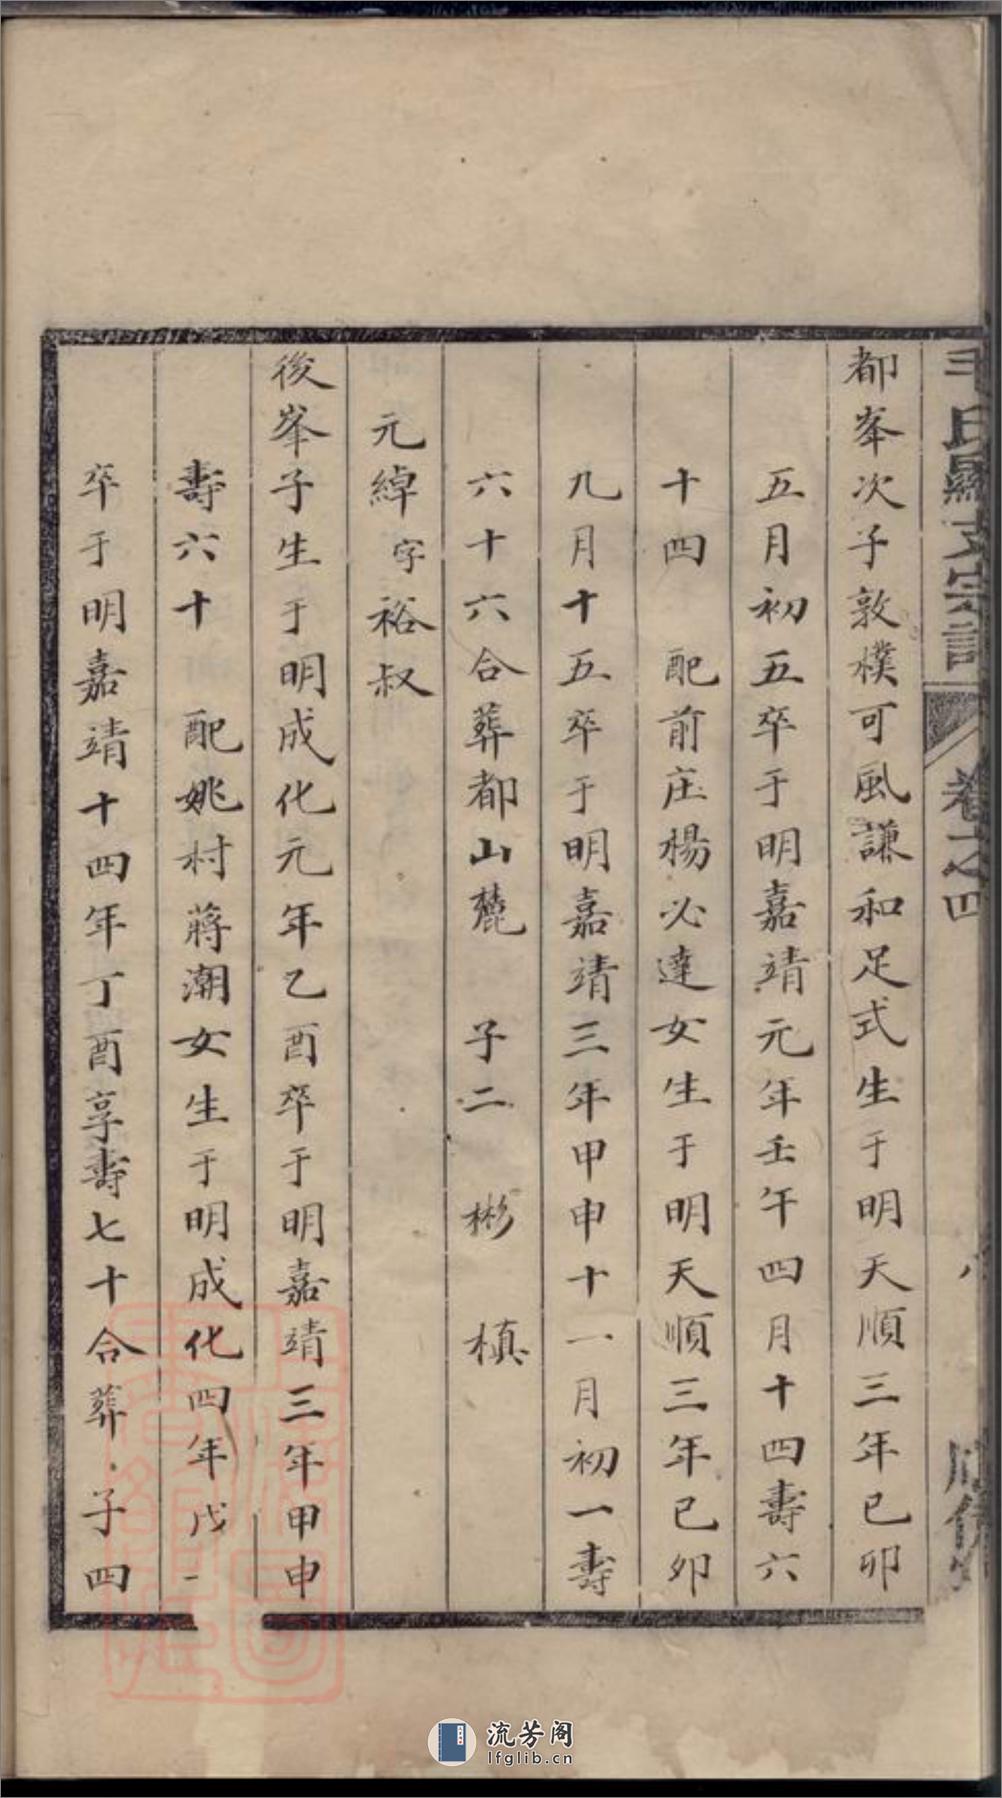 氏 宗譜 卷之四
都峯次子敦樸可風謙和足式生于明天順三年已卯
五月初五卒于明嘉靖元年壬午四月十四壽六
十四 配前庄楊必達女生于明天順三年已卯
九月十五卒于明嘉靖三年甲申十一月初一壽
六十六合葬都山麓 子二 彬 槙
元綽字裕叔
後峯子生于明成化元年乙酉卒于明嘉靖三年甲申
壽六十 配姚村蔣潮女生于明成化四年戊
卒于明嘉靖十四年丁酉享壽七十合葬 子四
流芳阁
lfglib.cn